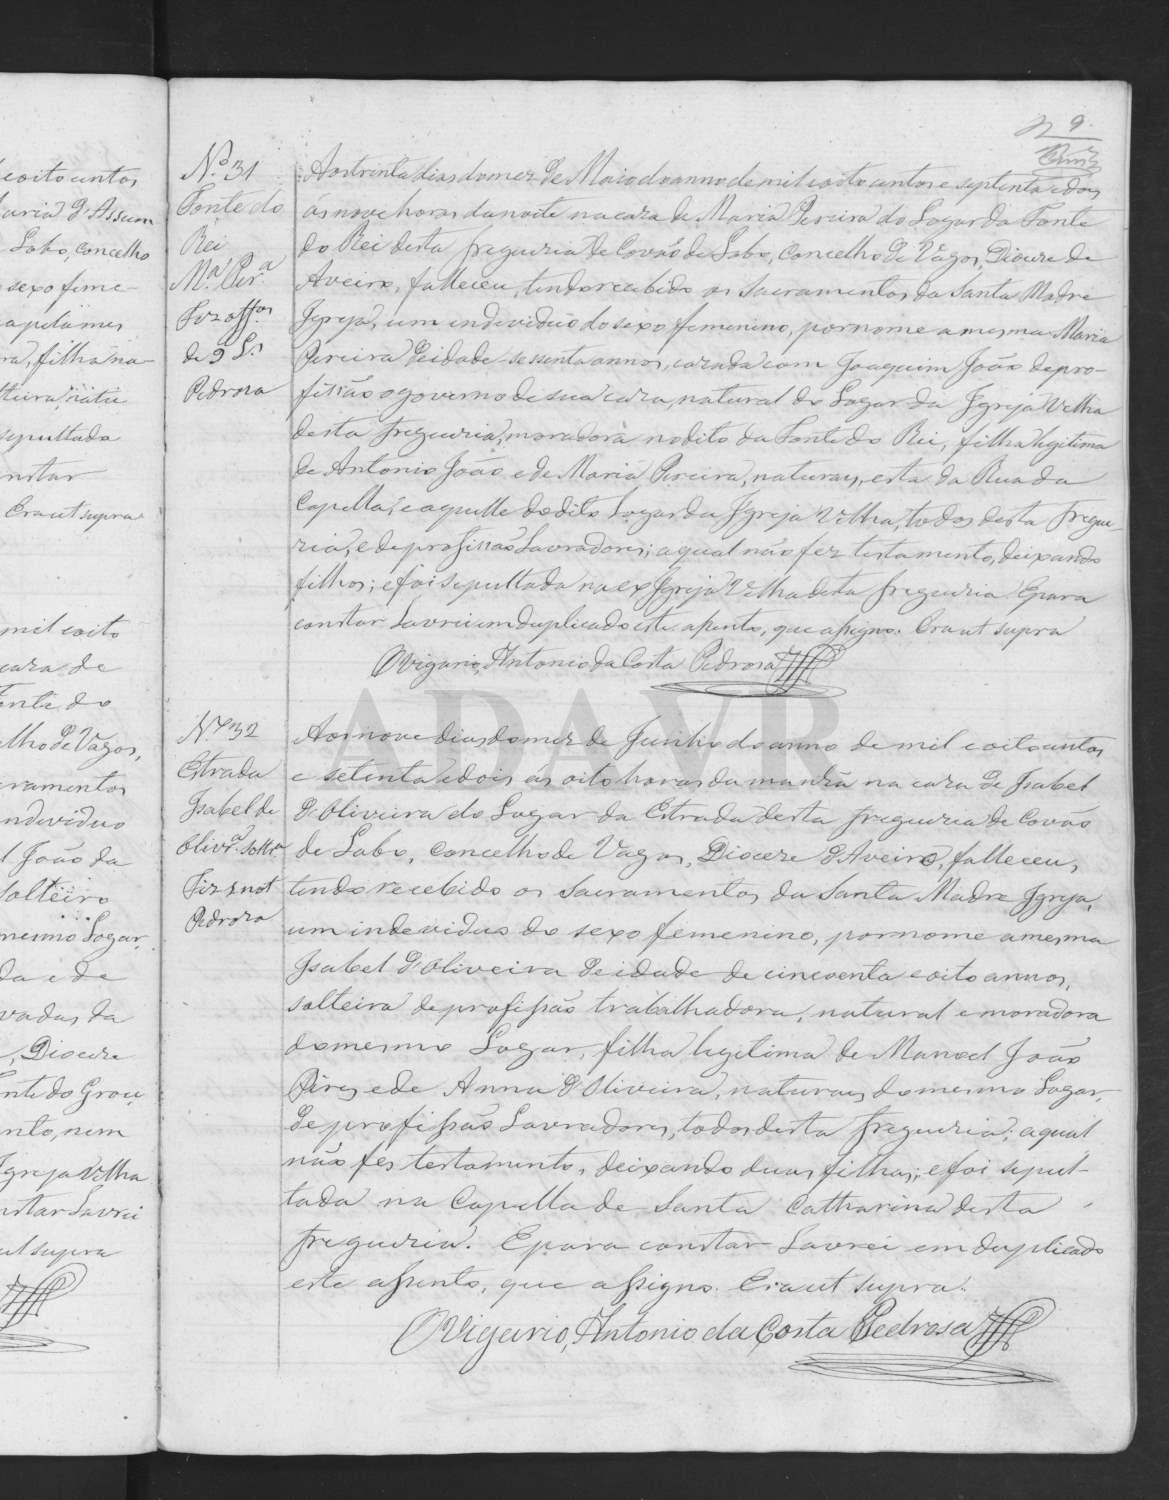 9
Nº 31
Fonte do
Rei
Mª Perª
Fez offos
de 9 Ls
Pedrosa
Aos trinta dias do mez de Maio do anno de mil e oito centos e septenta e dois
ás nove horas da noite na caza de Maria Pereira do Logar da Fonte
do Rei desta freguezia de Covão do Lobo, Concelho de Vagos, Dioceze de
Aveiro, falleceu, tendo recebido os Sacramentos da Santa Madre
Igreja, um individuo do sexo femenino, por nome a mesma Maria
Pereira de idade sessenta annos, cazada com Joaquim João de pro-
fissão o governo de sua caza, natural do Logar da Igreja Velha
desta freguezia, moradora no dito da Fonte do Rei, filha legitima
de Antonio João e de Maria Pereira, naturaes, esta da Rua da
Capella, e aquelle do dito Logar da Igreja Velha, todos desta fregue-
zia, e de profissão Lavradores; a qual não fez testamento, deixando
filhos; e foi sepultada na ex Igreja Velha desta freguezia. E para
constar Lavrei em duplicado este assento, que assigno. Era ut supra
O Vigario, Antonio da Costa Pedrosa
Nº 32
Estrada
Isabel de
Olivrª Soltrª
Fiz 2 not
Pedroza
Aos nove dias do mez de Junho do anno de mil e oito centos
e setenta e dois ás oito horas da manhã na caza de Isabel
d'Oliveira do Logar da Estrada desta freguezia de Covão
do Lobo, Concelho de Vagos, Dioceze d'Aveiro, falleceu,
tendo recebido os Sacramentos da Santa Madre Igreja,
um individuo do sexo femenino, por nome a mesma
Isabel d'Oliveira de idade de cincoenta e oito annos,
solteira de profissão trabalhadora, natural e moradora
do mesmo Logar, filha legitima de Manoel João
Pires e de Anna d'Oliveira, naturaes do mesmo Logar,
de profissão Lavradores, todos desta freguezia; a qual
não fes testamento, deixando duas filhas; e foi sepul-
tada na Capella de Santa Catharina desta
freguezia. E para constar Lavrei em duplicado
este assento, que assigno. Era ut supra.
O Vigario, Antonio da Costa Pedrosa
ADAVR